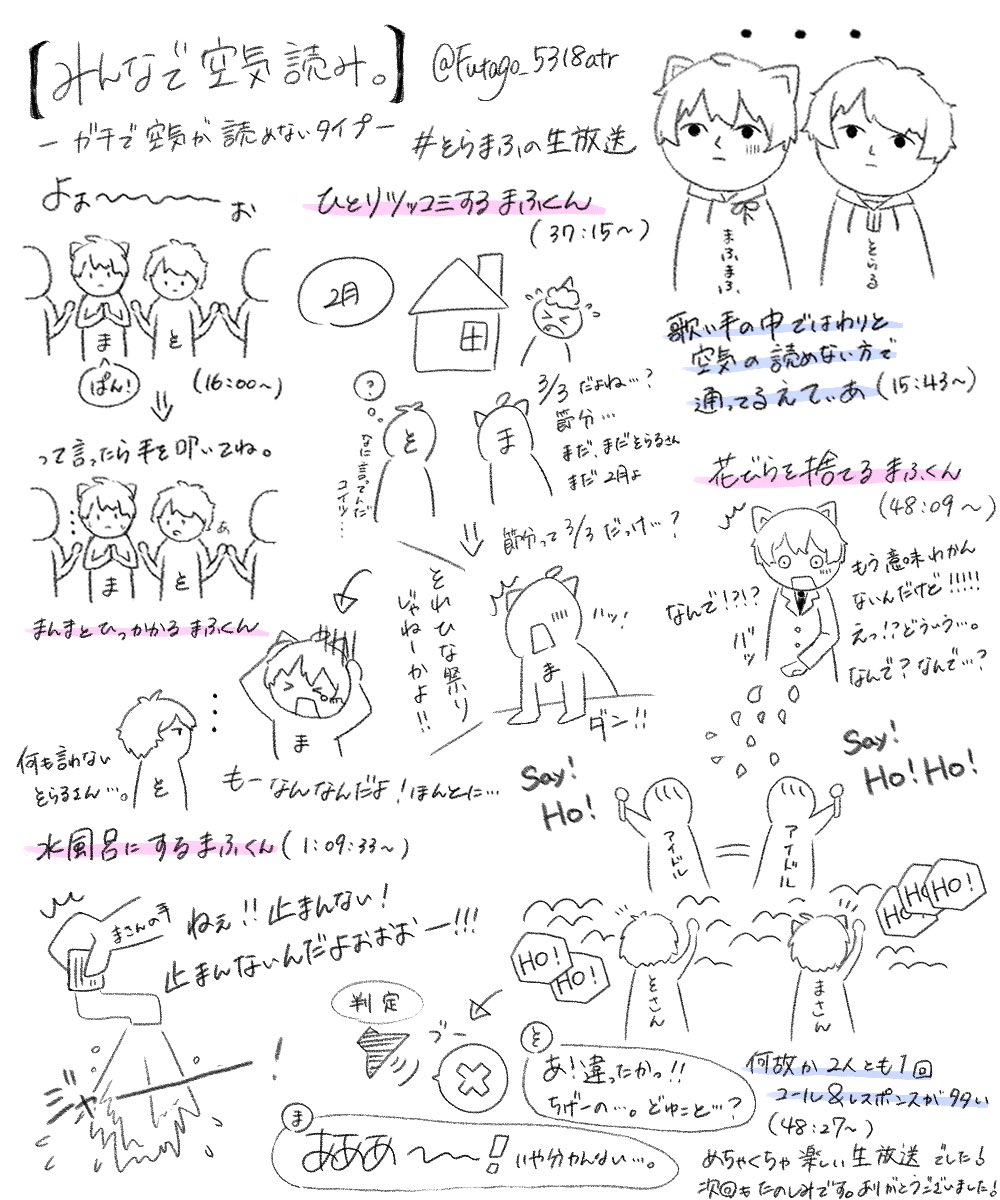 【みんなで空気読み。】
@Futago_5318atr
－ガチで空気が読めないタイプ－
#そらまふの生放送
・・・
まふまふ
そらる
歌い手の中ではわりと
空気の読めない方で
通ってるえてぃあ(15:43～)
よぉ～～～～～お
ま
と
ぱん!
(16:00～)
って言ったら手を叩いてね。
・・・
あ
ま
と
まんまとひっかかるまふくん
ひとりツッコミするまふくん
(37:15～)
2月
?
なに言ってんだ
コイツ…
と
ま
3/3だよね…?
節分…
まだ、まだそらるさん
まだ2月よ
節分って3/3だっけ…?
ハッ!
ま
ダン!!
それひな祭り
じゃねーかよ!!
ま
もーなんなんだよ!ほんとに…
・・・
と
何も言わない
そらるさん…。
花びらを捨てるまふくん
(48:09～)
なんで!?!?
バッ
もう意味わかん
ないんだけど!!!!!
えっ!?どういう…。
なんで?なんで…?
Say!
Ho!
Say!
Ho!Ho!
アイドル
=
アイドル
HO!
HO!
HO!
HO!
HO!
そさん
まさん
何故か2人とも1回
コール&レスポンスが多い
(48:27～)
水風呂にするまふくん(1:09:33～)
まさんの手
ねぇ!!止まんない!
止まんないんだよおおおー!!!
ジャー!
判定
ブー
そ
あ!違ったかっ!!
ちげーの…。どゆこと…?
ま
あああ～～!いや分かんない…。
めちゃくちゃ楽しい生放送でした!
次回もたのしみです。ありがとうございました!